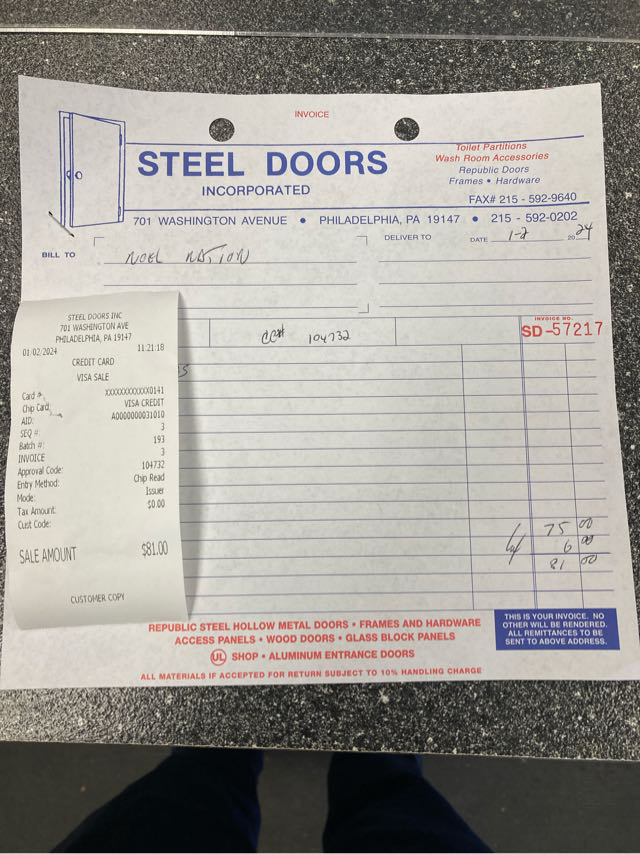 INVOICE
STEEL DOORS
INCORPORATED
Toilet Partitions
Wash Room Accessories
Republic Doors
Frames • Hardware
FAX# 215 - 592-9640
701 WASHINGTON AVENUE • PHILADELPHIA, PA 19147 • 215 - 592-0202
BILL TO
NOEL NATION
DELIVER TO
DATE 1-2 2024
CC# 104732
INVOICE NO.
SD-57217
STEEL DOORS INC
701 WASHINGTON AVE
PHILADELPHIA, PA 19147
01/02/2024 11:21:18
CREDIT CARD
VISA SALE
Card #: XXXXXXXXXXXX0141
Chip Card: VISA CREDIT
AID: A0000000031010
SEQ #: 3
Batch #: 193
INVOICE 3
Approval Code: 104732
Entry Method: Chip Read
Mode: Issuer
Tax Amount: $0.00
Cust Code:
SALE AMOUNT $81.00
CUSTOMER COPY
75 00
6 00
81 00
REPUBLIC STEEL HOLLOW METAL DOORS • FRAMES AND HARDWARE
ACCESS PANELS • WOOD DOORS • GLASS BLOCK PANELS
UL SHOP • ALUMINUM ENTRANCE DOORS
ALL MATERIALS IF ACCEPTED FOR RETURN SUBJECT TO 10% HANDLING CHARGE
THIS IS YOUR INVOICE. NO
OTHER WILL BE RENDERED.
ALL REMITTANCES TO BE
SENT TO ABOVE ADDRESS.